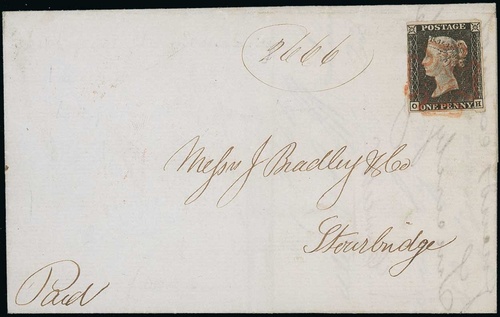 2666
POSTAGE
O ONE PENNY H
Messrs J Bradley & Co
Stourbridge
Paid